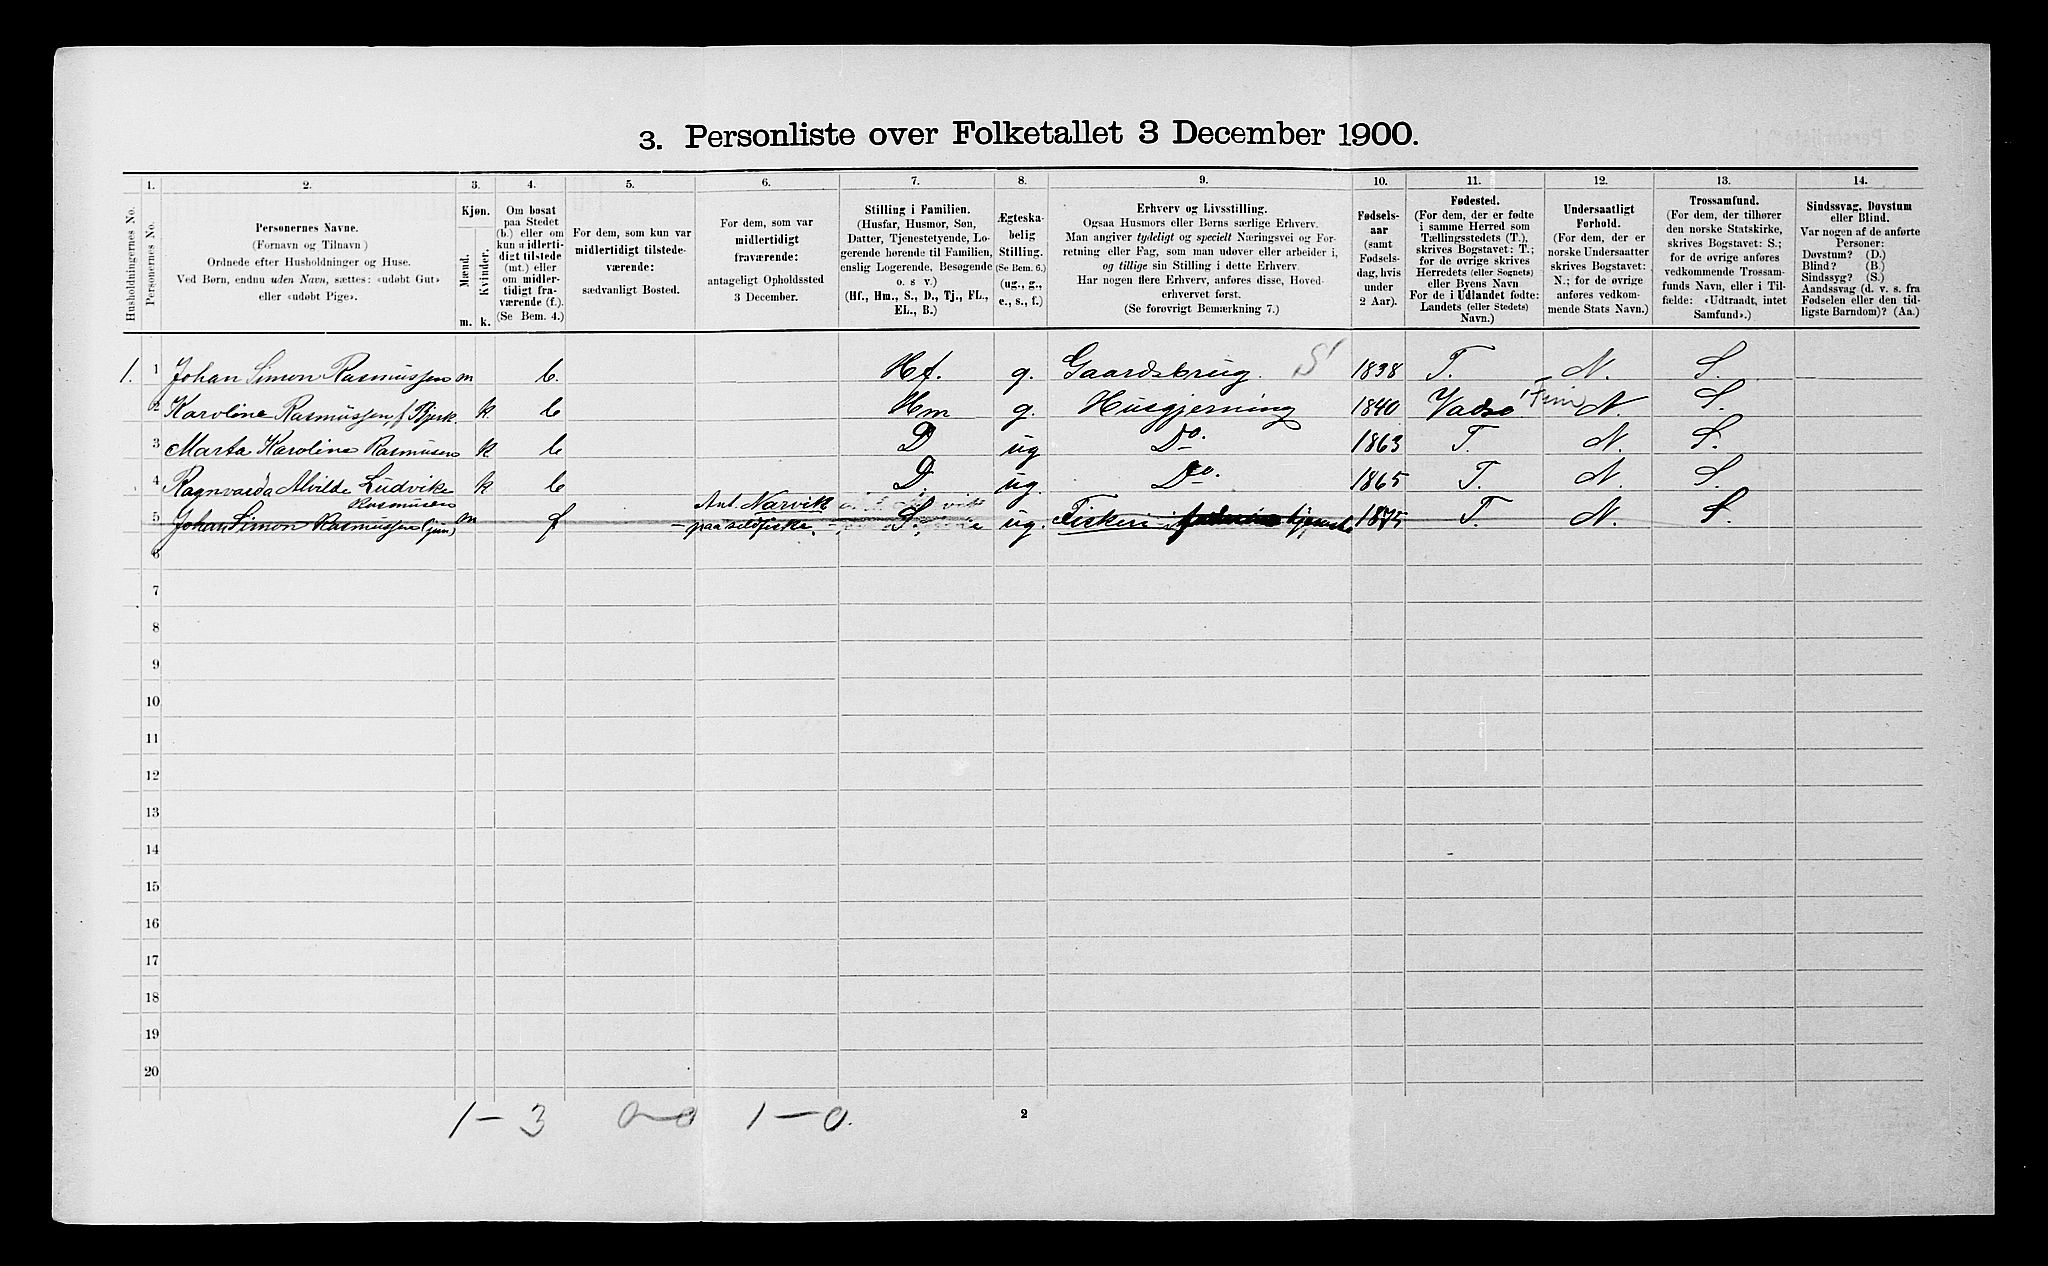 3. Personliste over Folketallet 3 December 1900.
1. 2. 3. 4. 5. 6. 7. 8. 9. 10. 11. 12. 13. 14.
Husholdningernes No.
Personernes No.
Personernes Navne.
(Fornavn og Tilnavn)
Ordnede efter Husholdninger og Huse.
Ved Børn, endnu uden Navn, sættes: «udøbt Gut»
eller «udøbt Pige».
Kjøn.
Mænd.
Kvinder.
m. k.
Om bosat
paa Stedet
(b.) eller om
kun midlerti-
digt tilstede
(mt.) eller
om midler-
tidigt fra-
værende (f.).
(Se Bem. 4.)
For dem, som kun var
midlertidigt tilstede-
værende:
sædvanligt Bosted.
For dem, som var
midlertidigt
fraværende:
antageligt Opholdssted
3 December.
Stilling i Familien.
(Husfar, Husmor, Søn,
Datter, Tjenestetyende, Lo-
gerende hørende til Familien,
enslig Logerende, Besøgende
o. s. v.)
(Hf., Hm., S., D., Tj., FL.,
EL., B.)
Ægteska-
belig
Stilling.
(Se Bem. 6.)
(ug., g.,
e., s., f.)
Erhverv og Livsstilling.
Ogsaa Husmors eller Børns særlige Erhverv.
Man angiver tydeligt og specielt Næringsvei og For-
retning eller Fag, som man udøver eller arbeider i,
og tillige sin Stilling i dette Erhverv.
Har nogen flere Erhverv, anføres disse, Hoved-
erhvervet først.
(Se forøvrigt Bemærkning 7.)
Fødsels-
aar
(samt
Fødsels-
dag, hvis
under
2 Aar).
Fødested.
(For dem, der er fødte
i samme Herred som
Tællingsstedets (T.),
skrives Bogstavet: T.;
for de øvrige skrives
Herredets (eller Sognets)
eller Byens Navn
For de i Udlandet fødte:
Landets (eller Stedets)
Navn.)
Undersaatligt
Forhold.
(For dem, der er
norske Undersaatter
skrives Bogstavet:
N.; for de øvrige
anføres vedkom-
mende Stats Navn.)
Trossamfund.
(For dem, der tilhører
den norske Statskirke,
skrives Bogstavet: S.;
for de øvrige anføres
vedkommende Trossam-
funds Navn, eller i Til-
fælde: «Udtraadt, intet
Samfund».)
Sindssvag, Døvstum
eller Blind.
Var nogen af de anførte
Personer:
Døvstum? (D.)
Blind? (B.)
Sindssyg? (S.)
Aandssvag (d. v. s. fra
Fødselen eller den tid-
ligste Barndom)? (Aa.)
1. 1 Johan Simon Rasmussen m b. Hf. g. Gaardsbrug. S 1838 T. N. S.
2 Karoline Rasmussen, f Bjerk. k b Hm g. Husgjerning 1840 Vadsø Fin N. S.
3 Marta Karoline Rasmusen k b D ug Do. 1863 T. N. S.
4 Ragnvarda Alvilde Ludvike k b D. ug. Do. 1865 T. N. S.
Rasmusen Ant. Narvik
5 Johan Simon Rasmussen (jun) m f paa sildfiske. S. ug. Fiskeri 1875 T. N. S.
6
7
8
9
10
11
12
13
14
15
16
17
18
19
20
1-3 0-0 1-0.
2